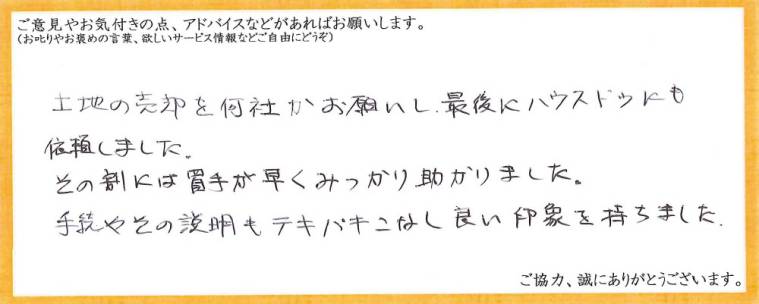 ご意見やお気付きの点、アドバイスなどがあればお願いします。
(お叱りやお褒めの言葉、欲しいサービス情報などご自由にどうぞ)
土地の売却を何社かお願いし、最後にハウスドゥにも
依頼しました。
その割には買手が早くみつかり助かりました。
手続やその説明もテキパキこなし良い印象を持ちました。
ご協力、誠にありがとうございます。